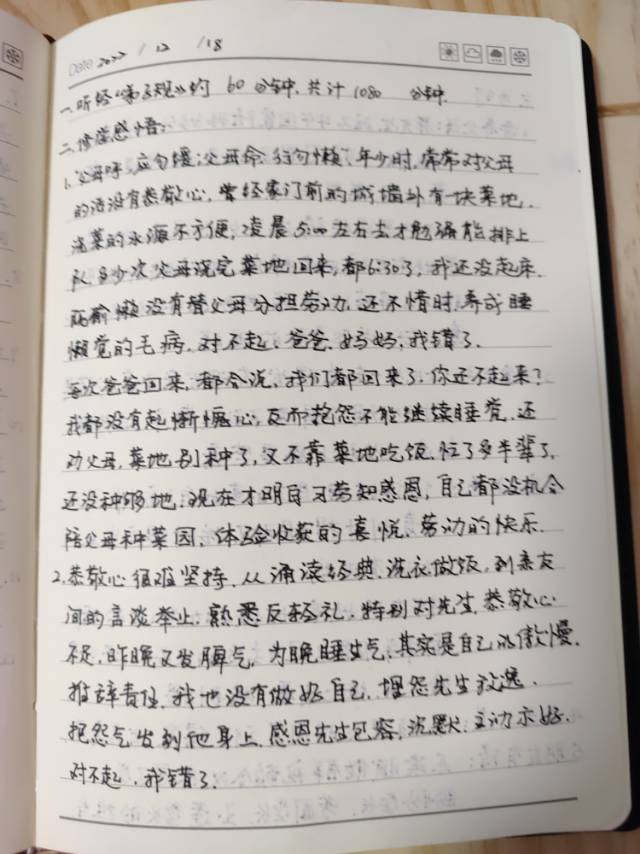 Date 2022 / 12 / 18
一、听经《弟子规》约 60 分钟，共计1080 分钟。
二、修学感悟：
1.父母呼，应勿缓；父母命，行勿懒，年少时，常常对父母
的话没有恭敬心，曾经家门前的城墙外有一块菜地，
浇菜的水源不方便，凌晨5:00左右去才勉强能排上
队，多少次父母浇完菜地回来，都6:30了，我还没起床。
偷懒没有替父母分担劳动，还不惜时，养成睡
懒觉的毛病，对不起，爸爸、妈妈，我错了。
每次爸爸回来，都会说，我们都回来了，你还不起来？
我都没有起惭愧心，反而抱怨不能继续睡觉，还
劝父母，菜地别种了，又不靠菜地吃饭，忙了多半辈了，
还没种够地，现在才明白习劳知感恩，自己都没机会
陪父母种菜园，体验收获的喜悦，劳动的快乐。
2.恭敬心很难坚持，从诵读经典，洗衣做饭，到亲友
间的言谈举止，熟悉反轻礼，特别对先生，恭敬心
不足，昨晚又发脾气，为晚睡生气，其实是自己的傲慢。
推辞责任，我也没有做好自己，埋怨先生放逸。
把怨气发到他身上，感恩先生包容，沉默，主动示好，
对不起，我错了。